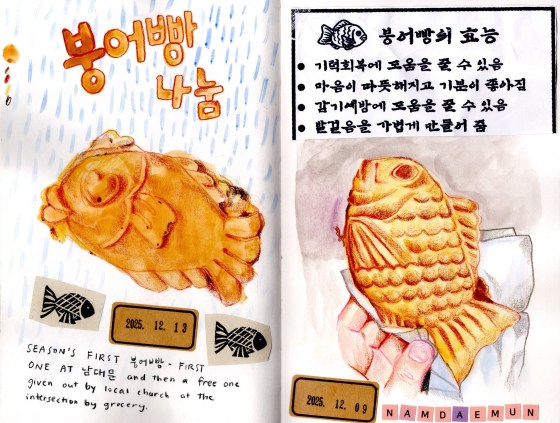 붕어빵
나눔
2025. 12. 13
SEASON'S FIRST 붕어빵 - FIRST
ONE AT 남대문 and then a free one
given out by local church at the
intersection by grocery.
붕어빵의 효능
● 기력회복에 도움을 줄 수 있음
● 마음이 따뜻해지고 기분이 좋아짐
● 감기예방에 도움을 줄 수 있음
● 발걸음을 가볍게 만들어 줌
2025. 12. 09
NAMDAEMUN